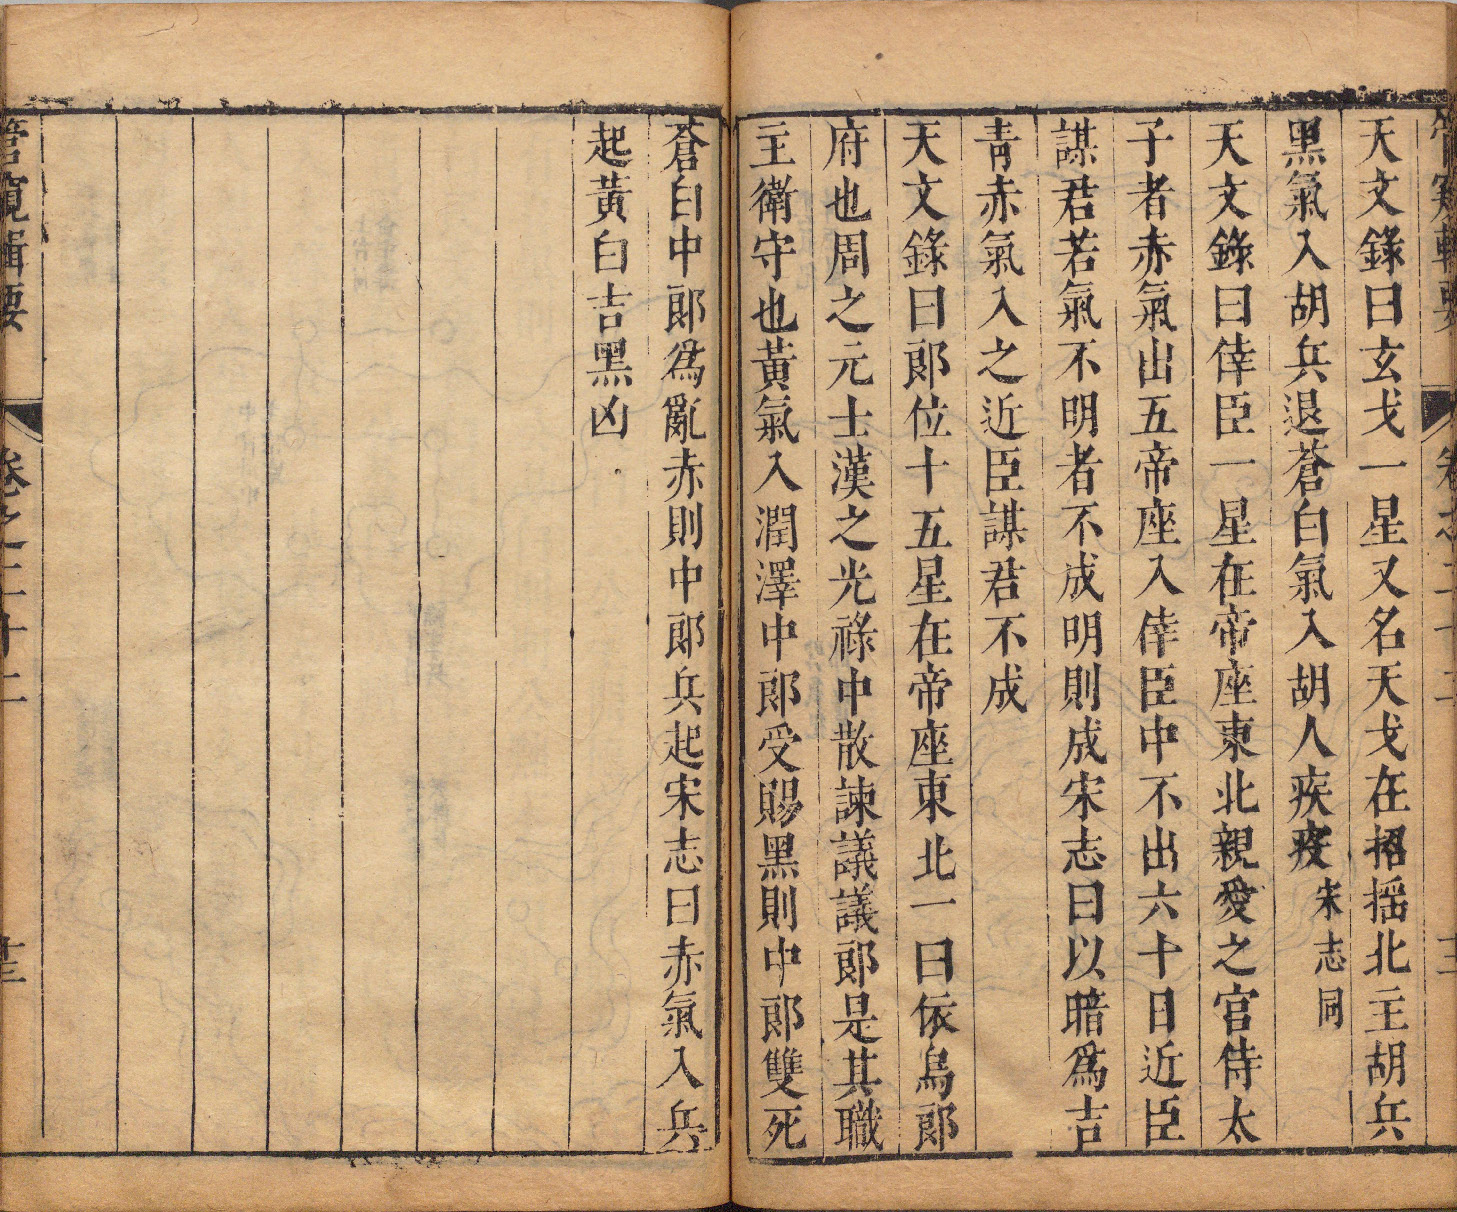 天文錄曰玄戈一星又名天戈在招搖北主胡兵
黑氣入胡兵退蒼白氣入胡人疾疫宋志同
天文錄曰倖臣一星在帝座東北親愛之官侍太
子者赤氣出五帝座入倖臣中不出六十日近臣
謀君若氣不明者不成明則成宋志曰以暗爲吉
青赤氣入之近臣謀君不成
天文錄曰郎位十五星在帝座東北一曰依烏郎
府也周之元士漢之光祿中散諫議議郎是其職
主衛守也黃氣入潤澤中郎受賜黑則中郎雙死
蒼白中郎爲亂赤則中郎兵起宋志曰赤氣入兵
起黃白吉黑凶
管窺輯要
卷之二十二